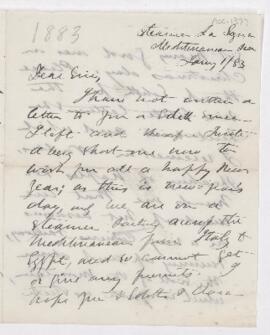 1883
Steamer La Syria
Mediterranean Sea
Jany 1/83
Dear Evie,
I have not written a
letter to you or Edith since
I left and therefore write
a very short one now to
wish you all a happy New
Year; as this is new year's
day, and we are on a
steamer
Mediterranean from Italy to
Egypt, and so cannot get
or give any presents. I
hope you & Edith & Clara